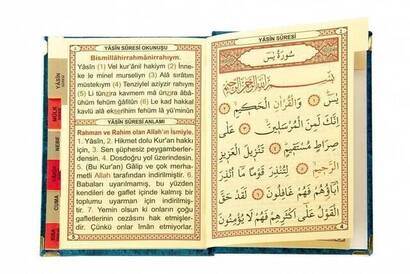 YÂSÎN SÛRESİ OKUNUŞU
Bismillâhirrahmânirrahıym.
Yâsîn (1) Vel kur'ânil hakiym (2) İnne-
ke le minel murseliyn (3) Alâ sırâtım
müstekıym (4) Tenziylel aziyzir rahıym
(5) Li tünzira kavmem mâ ünzira âbâ-
ühüm fehüm gâfilûn (6) Le kad hakkal
kavlü alâ ekserihim fehüm lâ yü'minûn
YÂSÎN SÛRESİ ANLAMI
Rahman ve Rahim olan Allah'ın İsmiyle.
1. Yâsîn, 2. Hikmet dolu Kur'an hakkı
için, 3. Sen şüphesiz peygamberler-
densin. 4. Dosdoğru yol üzerindesin.
5. (Bu Kur'an) Gâlip ve çok merha-
metli Allah tarafından indirilmiştir. 6.
Babaları uyarılmamış, bu yüzden
kendileri de gaflet içinde kalmış bir
toplumu uyarman için indirilmiştir.
7. Yemin olsun ki onların çoğu
gafletlerinin cezasını hak etmişler-
dir. Çünkü onlar İman etmiyorlar.
YÂSÎN
MÜLK
NEBE
CUMA
سُورَةُ يٰسٓ
بِسْمِ اللهِ الرَّحْمٰنِ الرَّحِيمِ
يٰسٓ ﴿١﴾ وَالْقُرْاٰنِ الْحَكِيمِ ﴿٢﴾
اِنَّكَ لَمِنَ الْمُرْسَلِينَ ﴿٣﴾ عَلٰى
صِرَاطٍ مُسْتَقِيمٍ ﴿٤﴾ تَنْزِيلَ الْعَزِيزِ
الرَّحِيمِ ﴿٥﴾ لِتُنْذِرَ قَوْمًا مَا اُنْذِرَ
اٰبَاؤُهُمْ فَهُمْ غَافِلُونَ ﴿٦﴾ لَقَدْ حَقَّ
الْقَوْلُ عَلٰى اَكْثَرِهِمْ فَهُمْ لَا يُؤْمِنُونَ
4